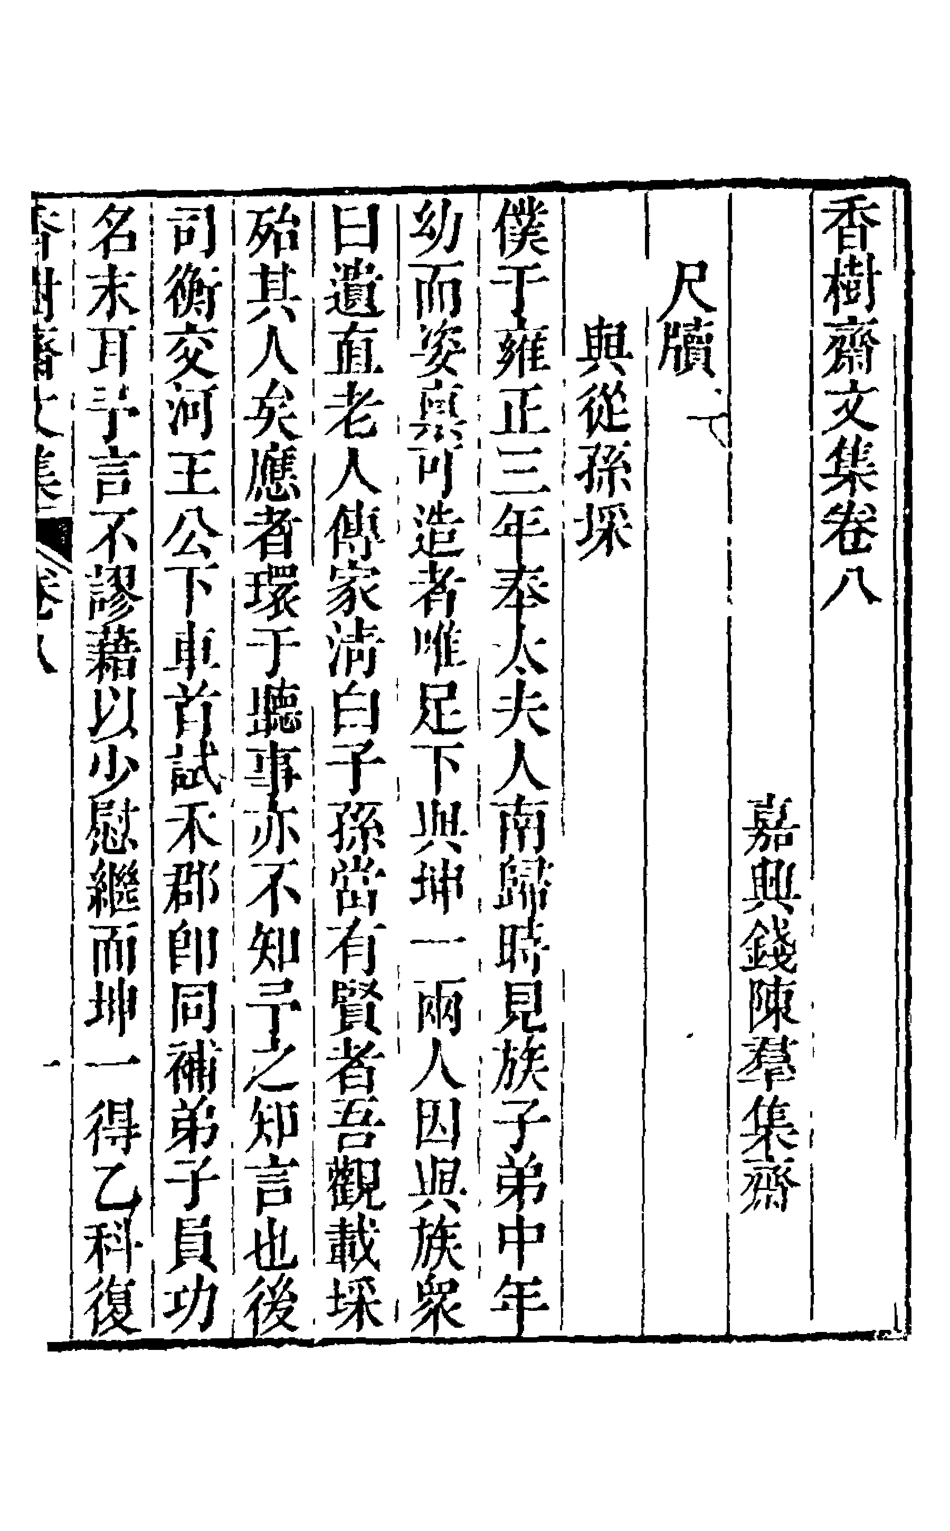 香樹齋文集卷八
嘉興錢陳羣集齋
尺牘
與從孫埰
僕于雍正三年奉太夫人南歸時見族子弟中年
幼而姿稟可造者唯足下與坤一兩人因與族衆
曰遺直老人傳家淸白子孫當有賢者吾觀載埰
殆其人矣應者環于聽事亦不知予之知言也後
司衡交河王公下車首試禾郡卽同補弟子員功
名末耳予言不謬藉以少慰繼而坤一得乙科復
香樹齋文集 卷八 一